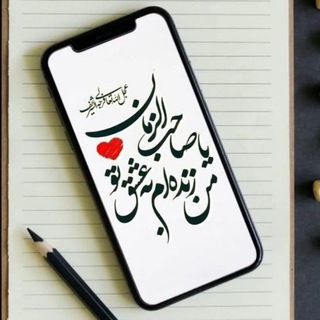 عجل الله تعالی فرجه الشریف
یا صاحب الزمان
من زنده ام به عشق تو